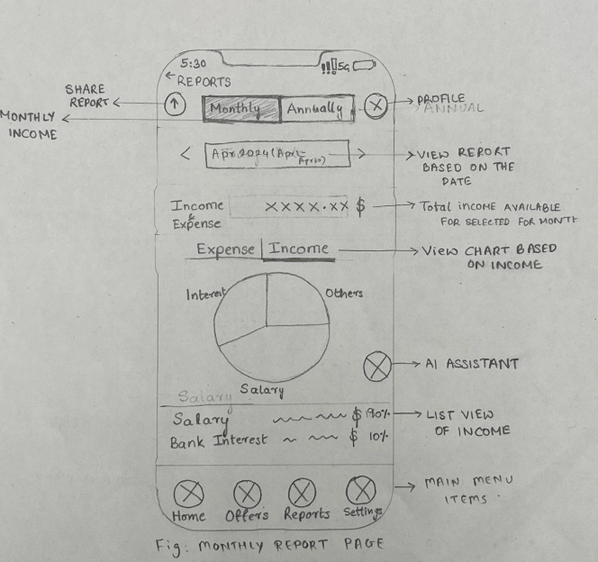 5:30
5G
← REPORTS
SHARE
REPORT
MONTHLY
INCOME
Monthly
Annually
PROFILE
ANNUAL
< Apr 2024 (Apr1-
Apr30) >
VIEW REPORT
BASED ON THE
DATE
Income
&
Expense
XXXX.XX $
Total INCOME AVAILABLE
FOR SELECTED FOR MONTH
Expense
Income
VIEW CHART BASED
ON INCOME
Interest
Others
Salary
AI ASSISTANT
Salary
Salary $ 90%
Bank Interest $ 10%
LIST VIEW
OF INCOME
Home
Offers
Reports
Settings
MAIN MENU
ITEMS.
Fig: MONTHLY REPORT PAGE